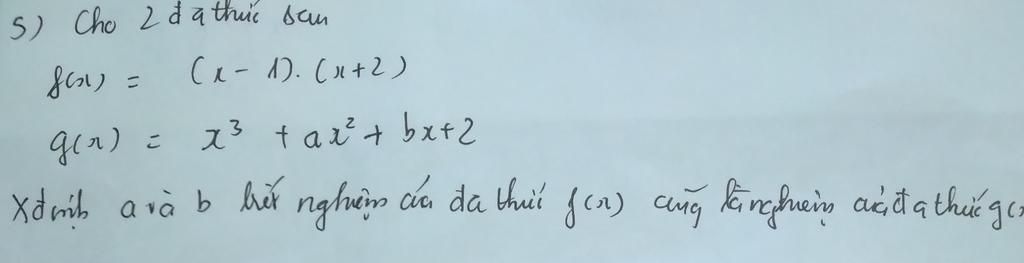 5) Cho 2 đa thức sau
f(x) = (x - 1). (x+2)
g(x) = x³ + ax² + bx+2
Xđịnh a và b biết nghiệm của đa thức f(x) cũng là nghiệm của đa thức g(x